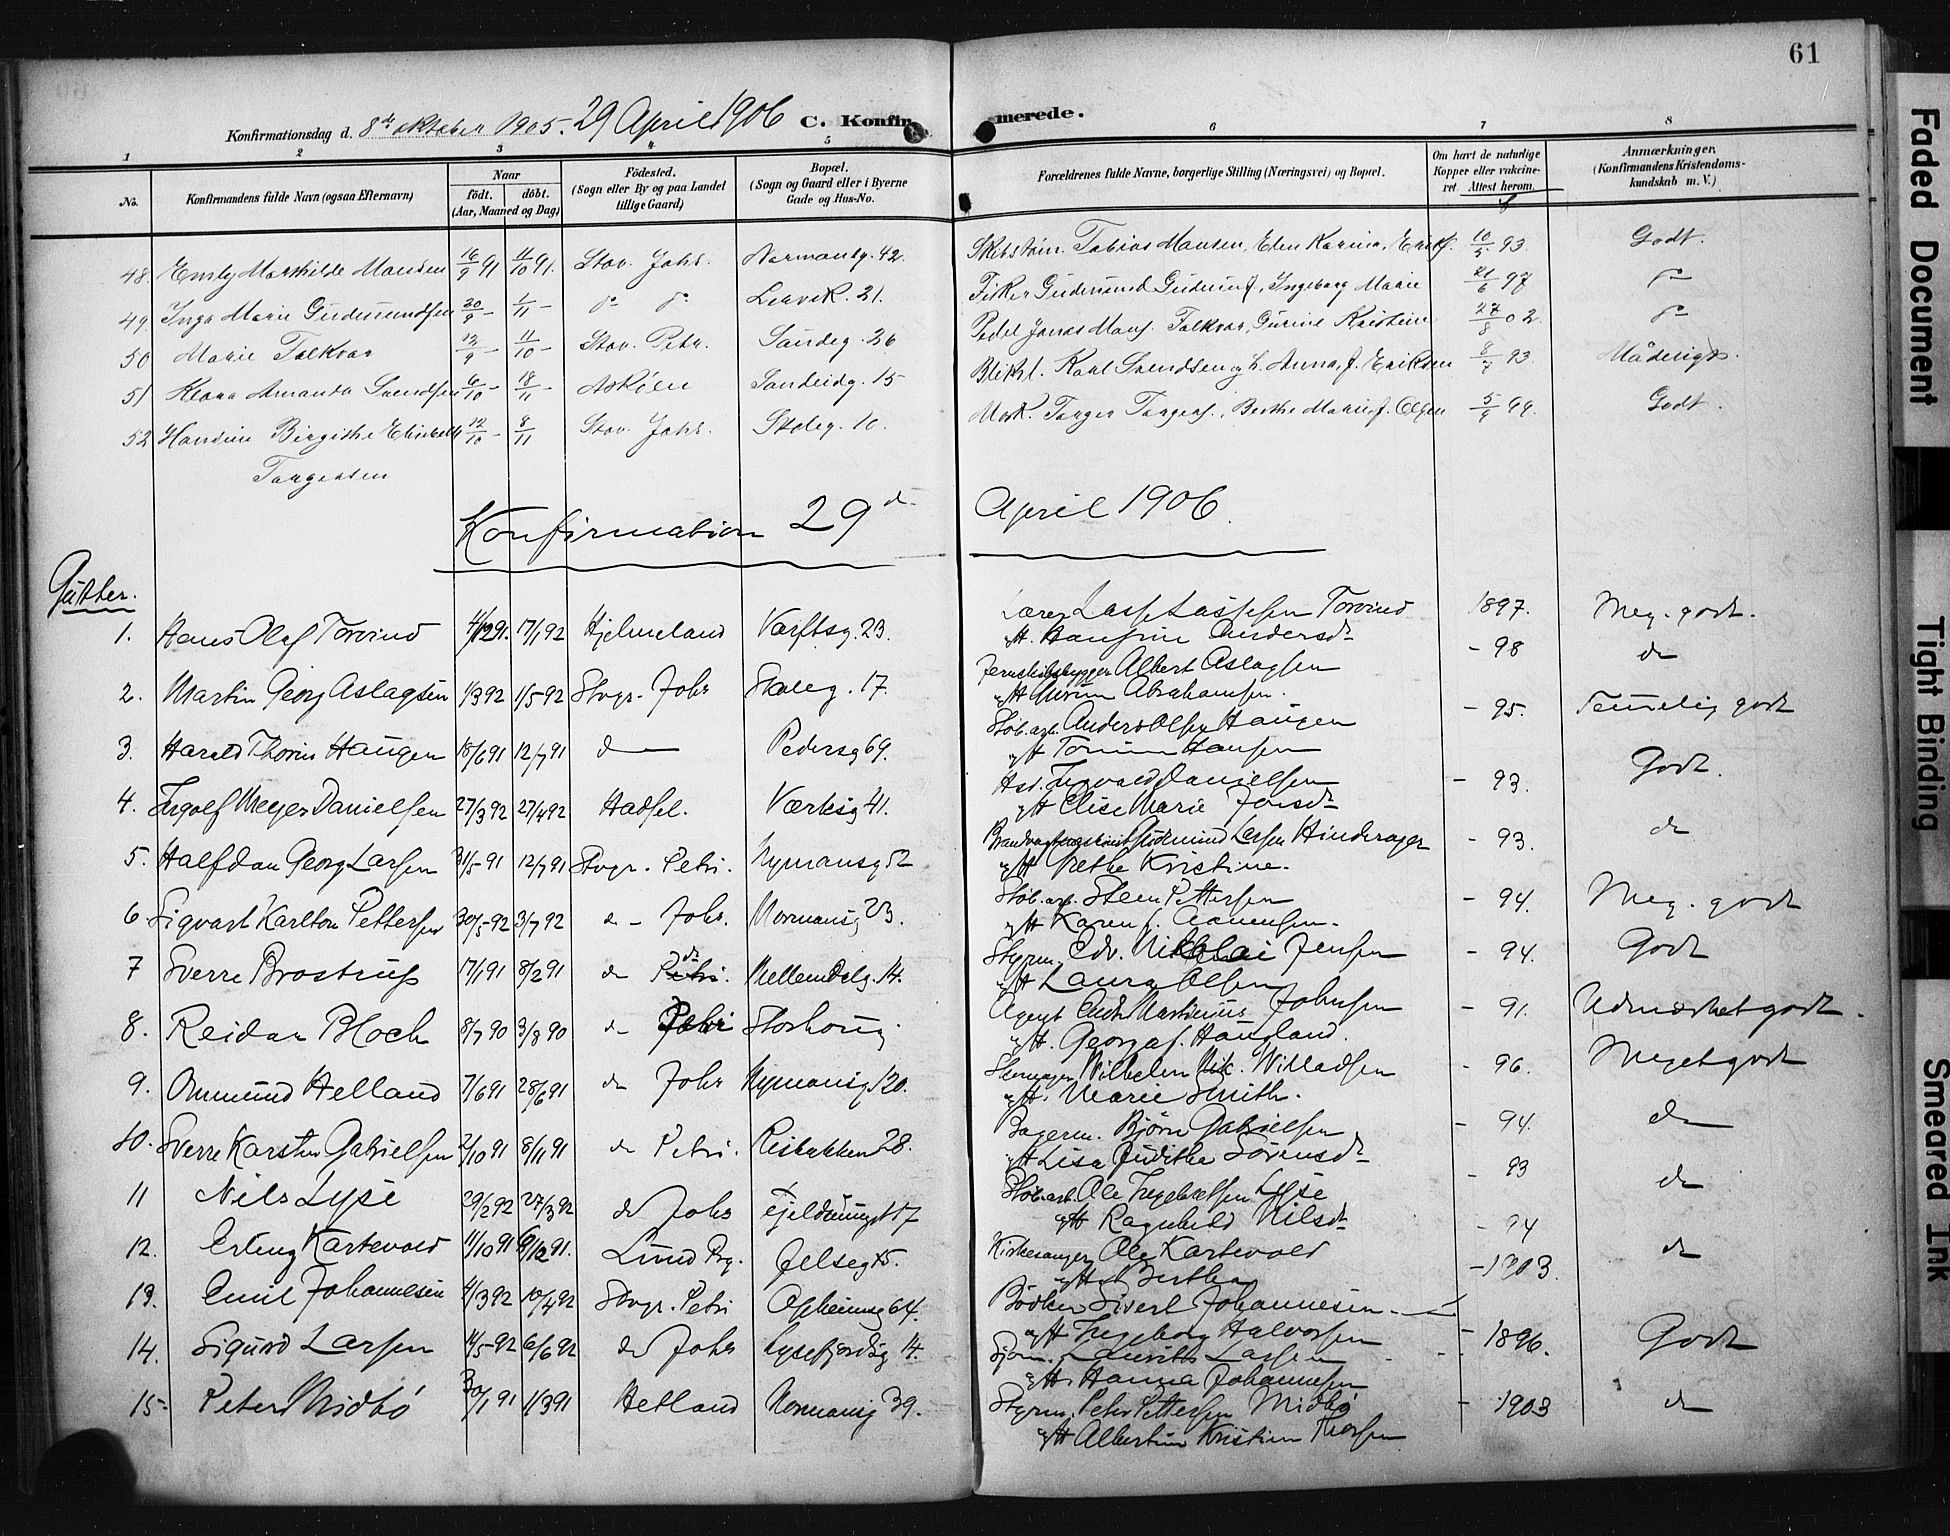 61
Konfirmationsdag d. 8de oktober 1905. 29 April 1906 C. Konfirmerede.
1 2 3 4 5 6 7 8
No.
Konfirmandens fulde Navn (ogsaa Efternavn)
Naar
født. døbt.
(Aar, Maaned og Dag)
Fødested.
(Sogn eller By og paa Landet
tillige Gaard)
Bopæl.
(Sogn og Gaard eller i Byerne
Gade og Hus-No.
Forældrenes fulde Navne, borgerlige Stilling (Næringsvei) og Bopæl.
Om havt de naturlige
Kopper eller vakcine-
ret. Attest herom.
Anmærkninger.
(Konfirmandens Kristendoms-
kundskab m. V.)
48. Emly Mathilde Hansen 16/9 91 11/10 91. Stav. Joh. Normansg. 42. Tobias Hansen, Karina, 10/5 93. Godt.
49 Inga Marie Gudmundsen 20/9 – 1/11 – do do Lervik. 21. Fisker Gudmund Ingeborg Marie 21/6 97 do
50 Marie Falkvar 12/9 – 11/10 – Stav. Petr. Sandeg. 26 Jonas Hans. Falkvar, Gurine Kristine 27/8 02. do
51 Klara Amanda Svendsen 6/10 – 18/11 – Askøen Sandeidg. 15 Blikksl. Karl Svendsen og h. Anna, f. Eriksen 8/7 93 Mådeligts.
52 Hansine Birgithe Elisabeth 12/10 – 8/11 Stav. Joh. Skoleg. 10. Torger Torgers., Berthe Marie f. Olsen 5/9 99. Godt.
Torgersen
Konfirmation 29de April 1906.
Gutter.
1. Hans Olaf Torvind 4/12 91. 17/1 92 Hjelmeland Værftsg. 23. Lærer Lasse Lassesen Torvind 1897. Meg. godt.
H. Hansine Andersdr
2. Martin Georg Aslagsen 1/3 92 1/5 92 Stvgr. Johs Skoleg. 17. Jernskibsbygger Albert Aslagsen – 98 do
Abrahamsen.
3. Harald Thorin Haugen 18/6 91 12/7 91 do Pedersg 69. Støb. arb. Anders Olsen Haugen – 95. Temmelig godt
Hansen
4. Ingolf Meyer Danielsen 27/3 92 27/4 92 Hadsel. Værksg 41. Danielsen – 93. Godt.
Elise Marie Jensdr
5. Halfdan Georg Larsen 31/5 91 12/7 91 Stvgr. Petri. Nymansg 52 Gudmund Larsen Hinderager – 93. do
Grethe Kristine.
6. Sigvart Karlton Pettersen 30/5 92 3/7 92 do – Johs. Normansg 23. Støb. arb. Steen Pettersen – 94. Meg. godt
Karen f. Aanensen.
7 Sverre Brostrup 17/1 91 8/2 91 do Petri. do Mellemdalg. 14. Styrm. Edv. Nikolai Jensen – 94. Godt
Laura Olsen
8. Reidar Bloch 8/7 90 3/8 90 do Storhoug Agent Andr. Martinius Johnsen – 91. Udmærket godt.
H. Georga f. Haugland.
9. Ommund Helland 7/6 91 28/6 91 do Johs Nymansg 120. Wilhelm Nik. Willadsen – 96. Meget godt
H. Marie Smith.
10. Sverre Karsten Gabrielsen 2/10 91 8/11 91 do Petri. Risbakken 28. Bagerm. Bjørn Gabrielsen – 94. do
Lisa Juditha Sørensdr
11 Nils Lyse 29/2 92 27/3 92 do Johs 17 Støb. arb. Ole Ingebretsen Lyse – 93 do
Ragnhild Nilsdr – 94
12. Erling Kartevold 11/10 91 6/12 91. Lund Prg. Jelseg 5. Kirkesanger Ole Kartevold – 1903. do
Bertha
13. Emil Johannesen 4/3 92 10/4 92 Stvgr. Petri Opheimsg 64. Bødker Sivert Johannesen –
Ingeborg Halvorsen
14. Sigurd Larsen 14/5 92 6/6 92 do Johs Lysefjordsg 14. Sjøm. Lauritz Larsen – 1896. Godt
Hanna Johannesen
15. Peter Midbø 30/1 91 1/3 91 Hetland Normansg 39. Styrm. Peter Pettersen Midbø – 1903 do
Albertine Kristine
Faded Document
Tight Binding
Smeared Ink